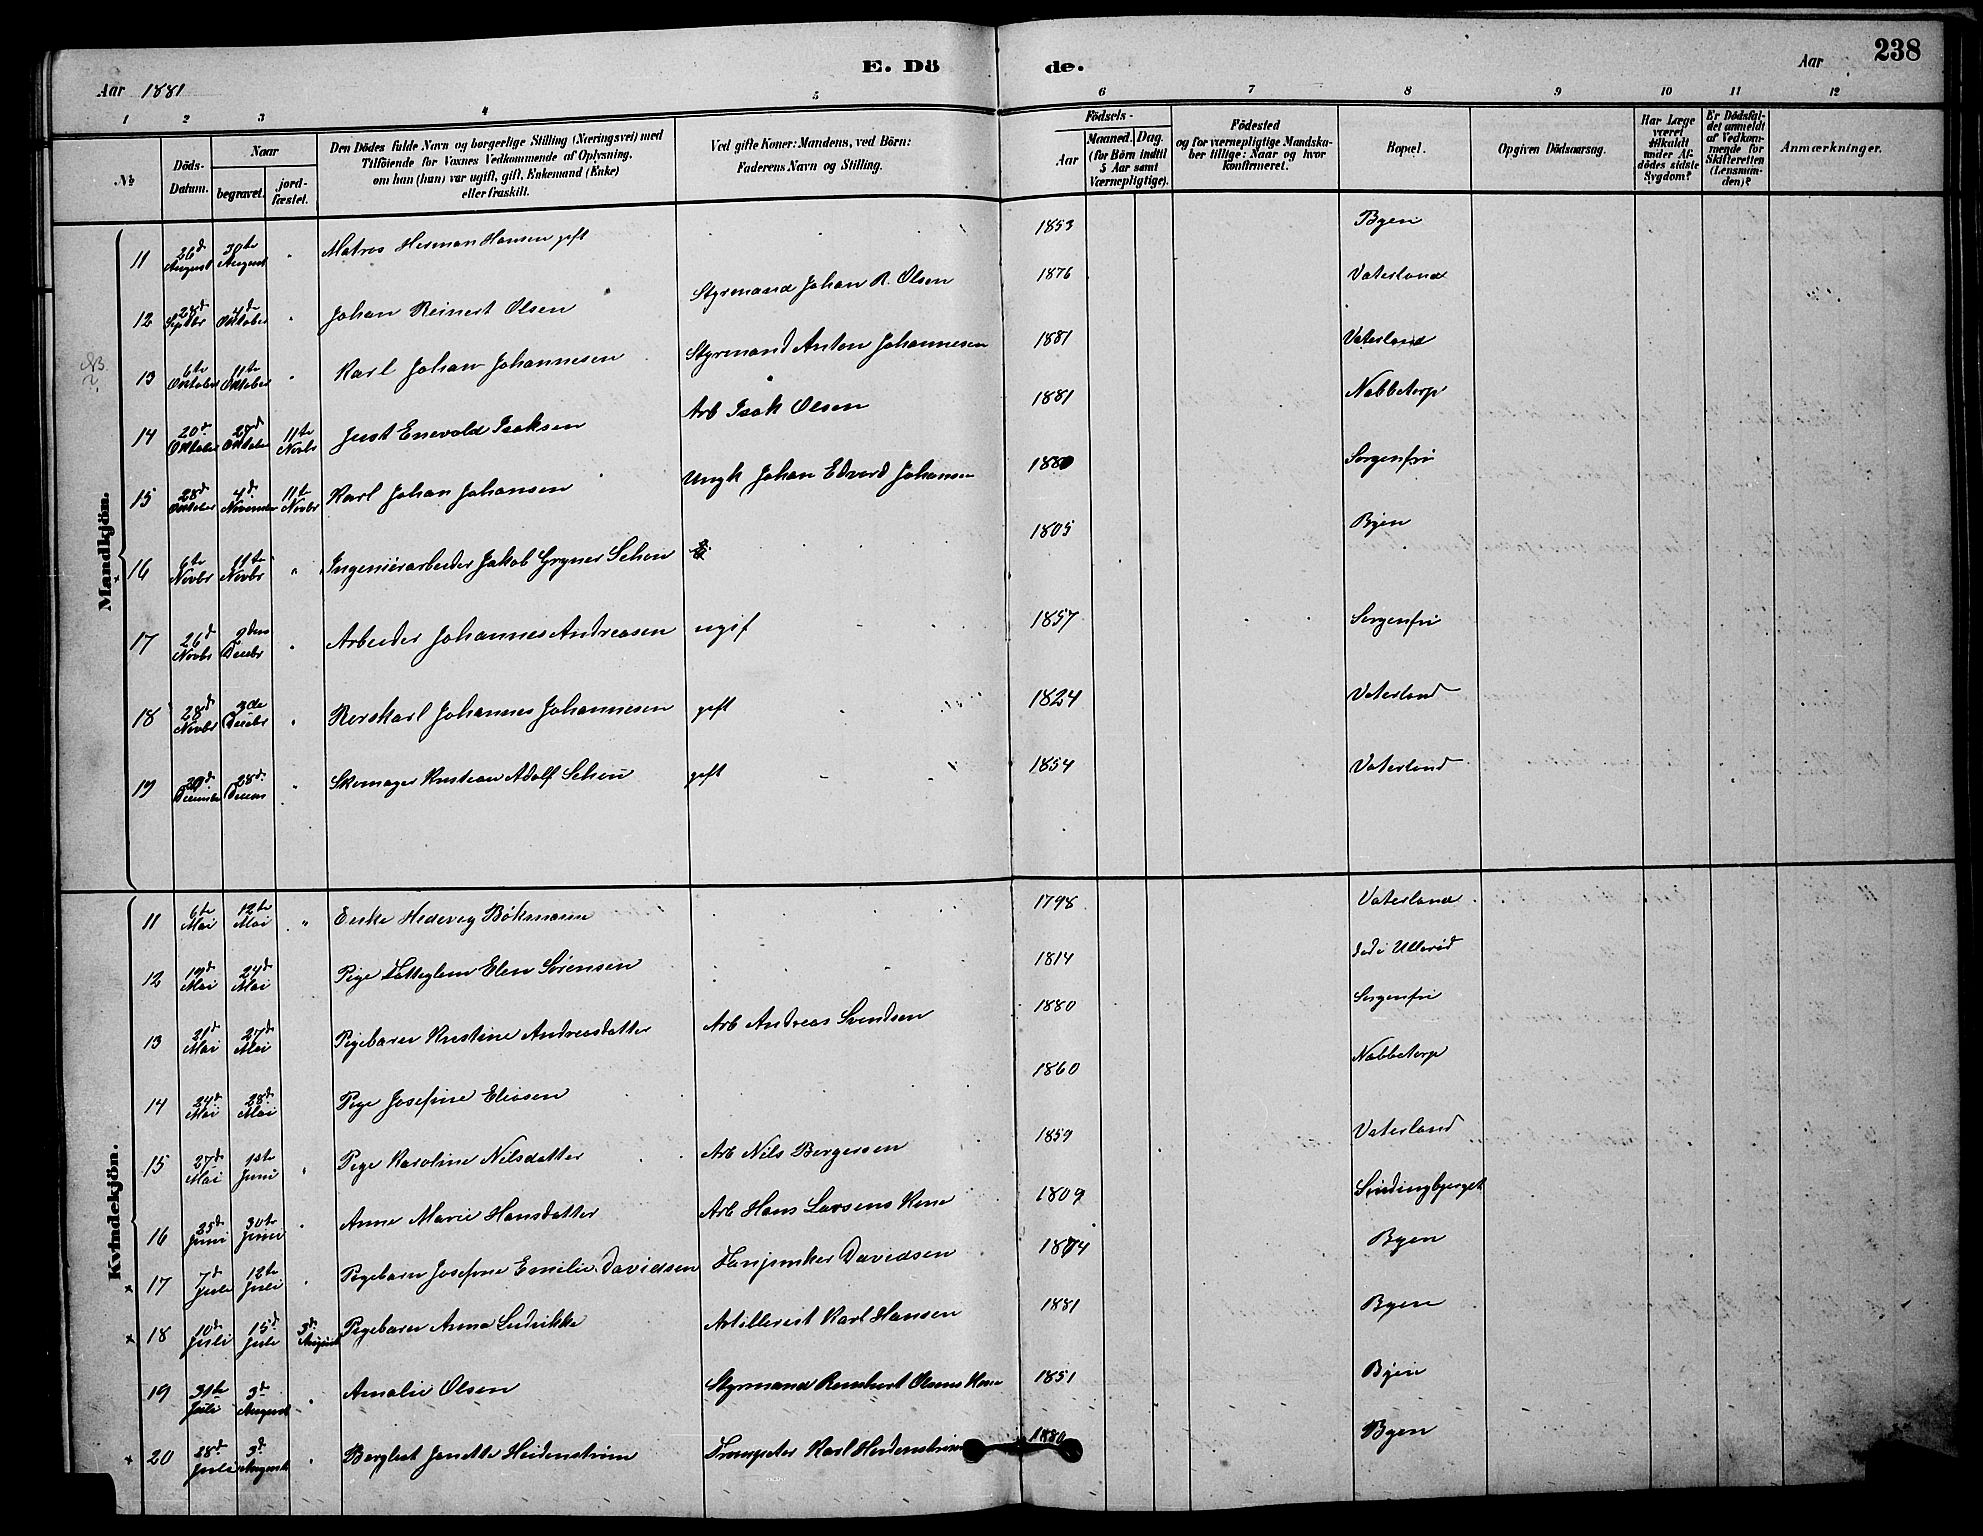 238
E. Döde.
Aar 1881
Aar
1 2 3 4 5 6 7 8 9 10 11 12
No
Döds-Datum.
Naar
begravet.
jord-fæstet.
Den Dödes fulde Navn og borgerlige Stilling (Næringsvei) med
Tilföiende for Voxnes Vedkommende af Oplysning,
om han (hun) var ugift, gift, Enkemand (Enke)
eller fraskilt.
Ved gifte Koner: Mandens, ved Börn:
Faderens Navn og Stilling.
Födsels-
Aar
Maaned. Dag.
(for Börn indtil
5 Aar samt
Værnepligtige).
Födested
og for værnepligtige Mandska-
ber tillige: Naar og hvor
konfirmeret.
Bopæl.
Opgiven Dödsaarsag.
Har Læge
været
tilkaldt
under Af-
dödes sidste
Sygdom?
Er Dödsfal-
det anmeldt
af Vedkom-
mende for
Skifteretten
(Lensman-
den)?
Anmærkninger.
Mandkjön.
11 26d August 30te August " Matros Herman Hansen gift 1853 Byen
12 28d Septbr 4d Oktober " Johan Reinert Olsen Styrmand Johan R. Olsen 1876 Vaterland
13 6te Oktober 11te Oktober " Karl Johan Johannesen Styrmand Anton Johannesen 1881 Vaterland
14 20d Oktober 28d Oktober 11te Novbr Just Enevold Isaksen Arb Isak Olsen 1881 Nabbetorp
15 28d Oktober 4d November 11te Novbr Karl Johan Johansen Ungk Johan Edvard Johansen 1880 Sorgenfri
16 6te Novbr 11te Novbr " Ingeniörarbeider Jakob Grygner Schou 1805 Byen
17 26d Novbr 2den Decbr " Arbeider Johannes Andreasen ugif 1857 Sorgenfri
18 28d Novbr 3die Decbr " Rorskarl Johannes Johannesen gift 1824 Vaterland
19 20d December 28d Decem " Skomager Kristian Adolf Schou gift 1854 Vaterland
Kvindekjön.
11 6te Mai 12te Mai " Enke Hedevig Bökmann 1798 Vaterland
12 19d Mai 24d Mai Pige Fatteglem Elen Sörensen 1814 Ulleröd
13 21d Mai 27d Mai Pigebarn Kristine Andreasdatter Arb Andreas Svendsen 1880 Sorgenfri
14 24d Mai 28d Mai Pige Josefine Eliasen 1860 Nabbetorp
15 27d Mai 1ste Juni " Pige Karoline Nilsdatter Arb Nils Bergersen 1859 Vaterland
16 25d Juni 30te Juni " Anne Marie Hansdatter Arb Hans Larsens Kone 1809 Sindingbjerget
17 7d Juli 12te Juli " Pigebarn Josefine Emilie Davidsen Fanjunker Davidsen 1874 Byen
18 10d Juli 15d Juli 3d August Pigebarn Anna Ludvikke Artillerist Karl Hansen 1881 Byen
19 31te Juli 3d August " Amalie Olsen Styrmand Reinhert Olsens Kone 1851 Byen
20 28d Juli 3d August " Bergliot Janette Heidenström Trompeter Karl Heidenström 1880 Byen